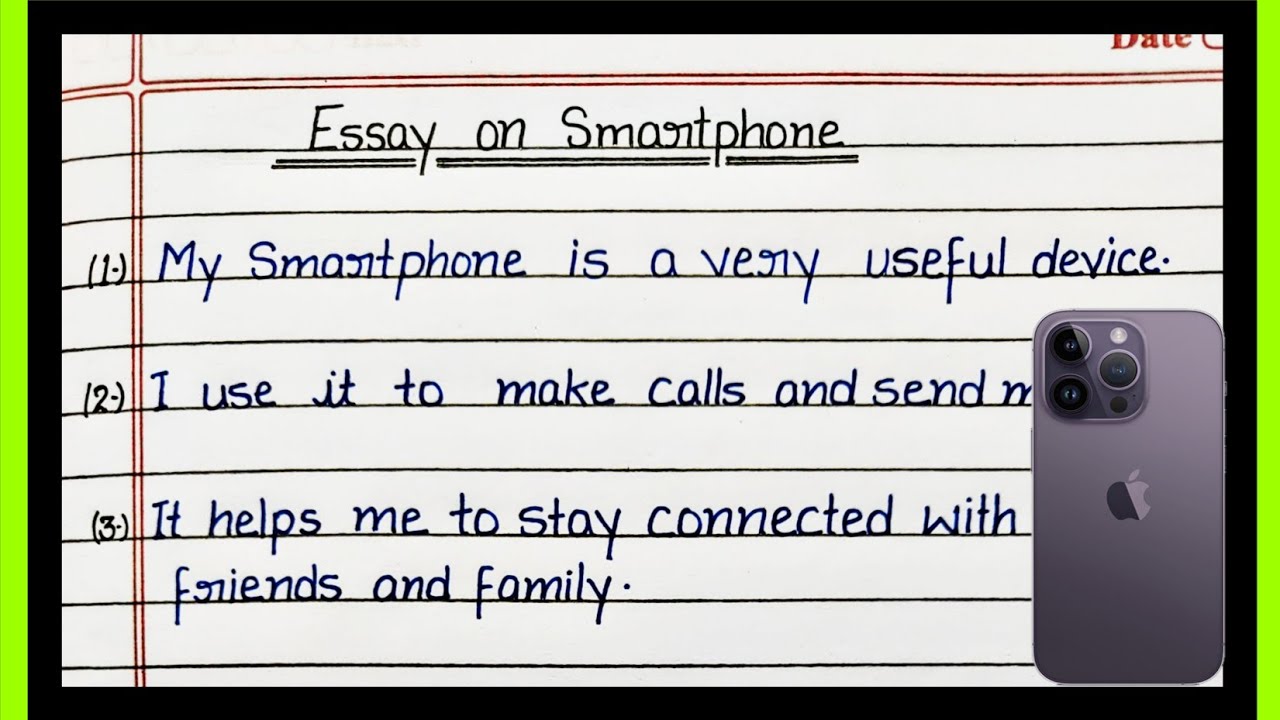 Date
Essay on Smartphone
(1.) My Smartphone is a very useful device.
(2.) I use it to make calls and send
(3.) It helps me to stay connected with
friends and family.